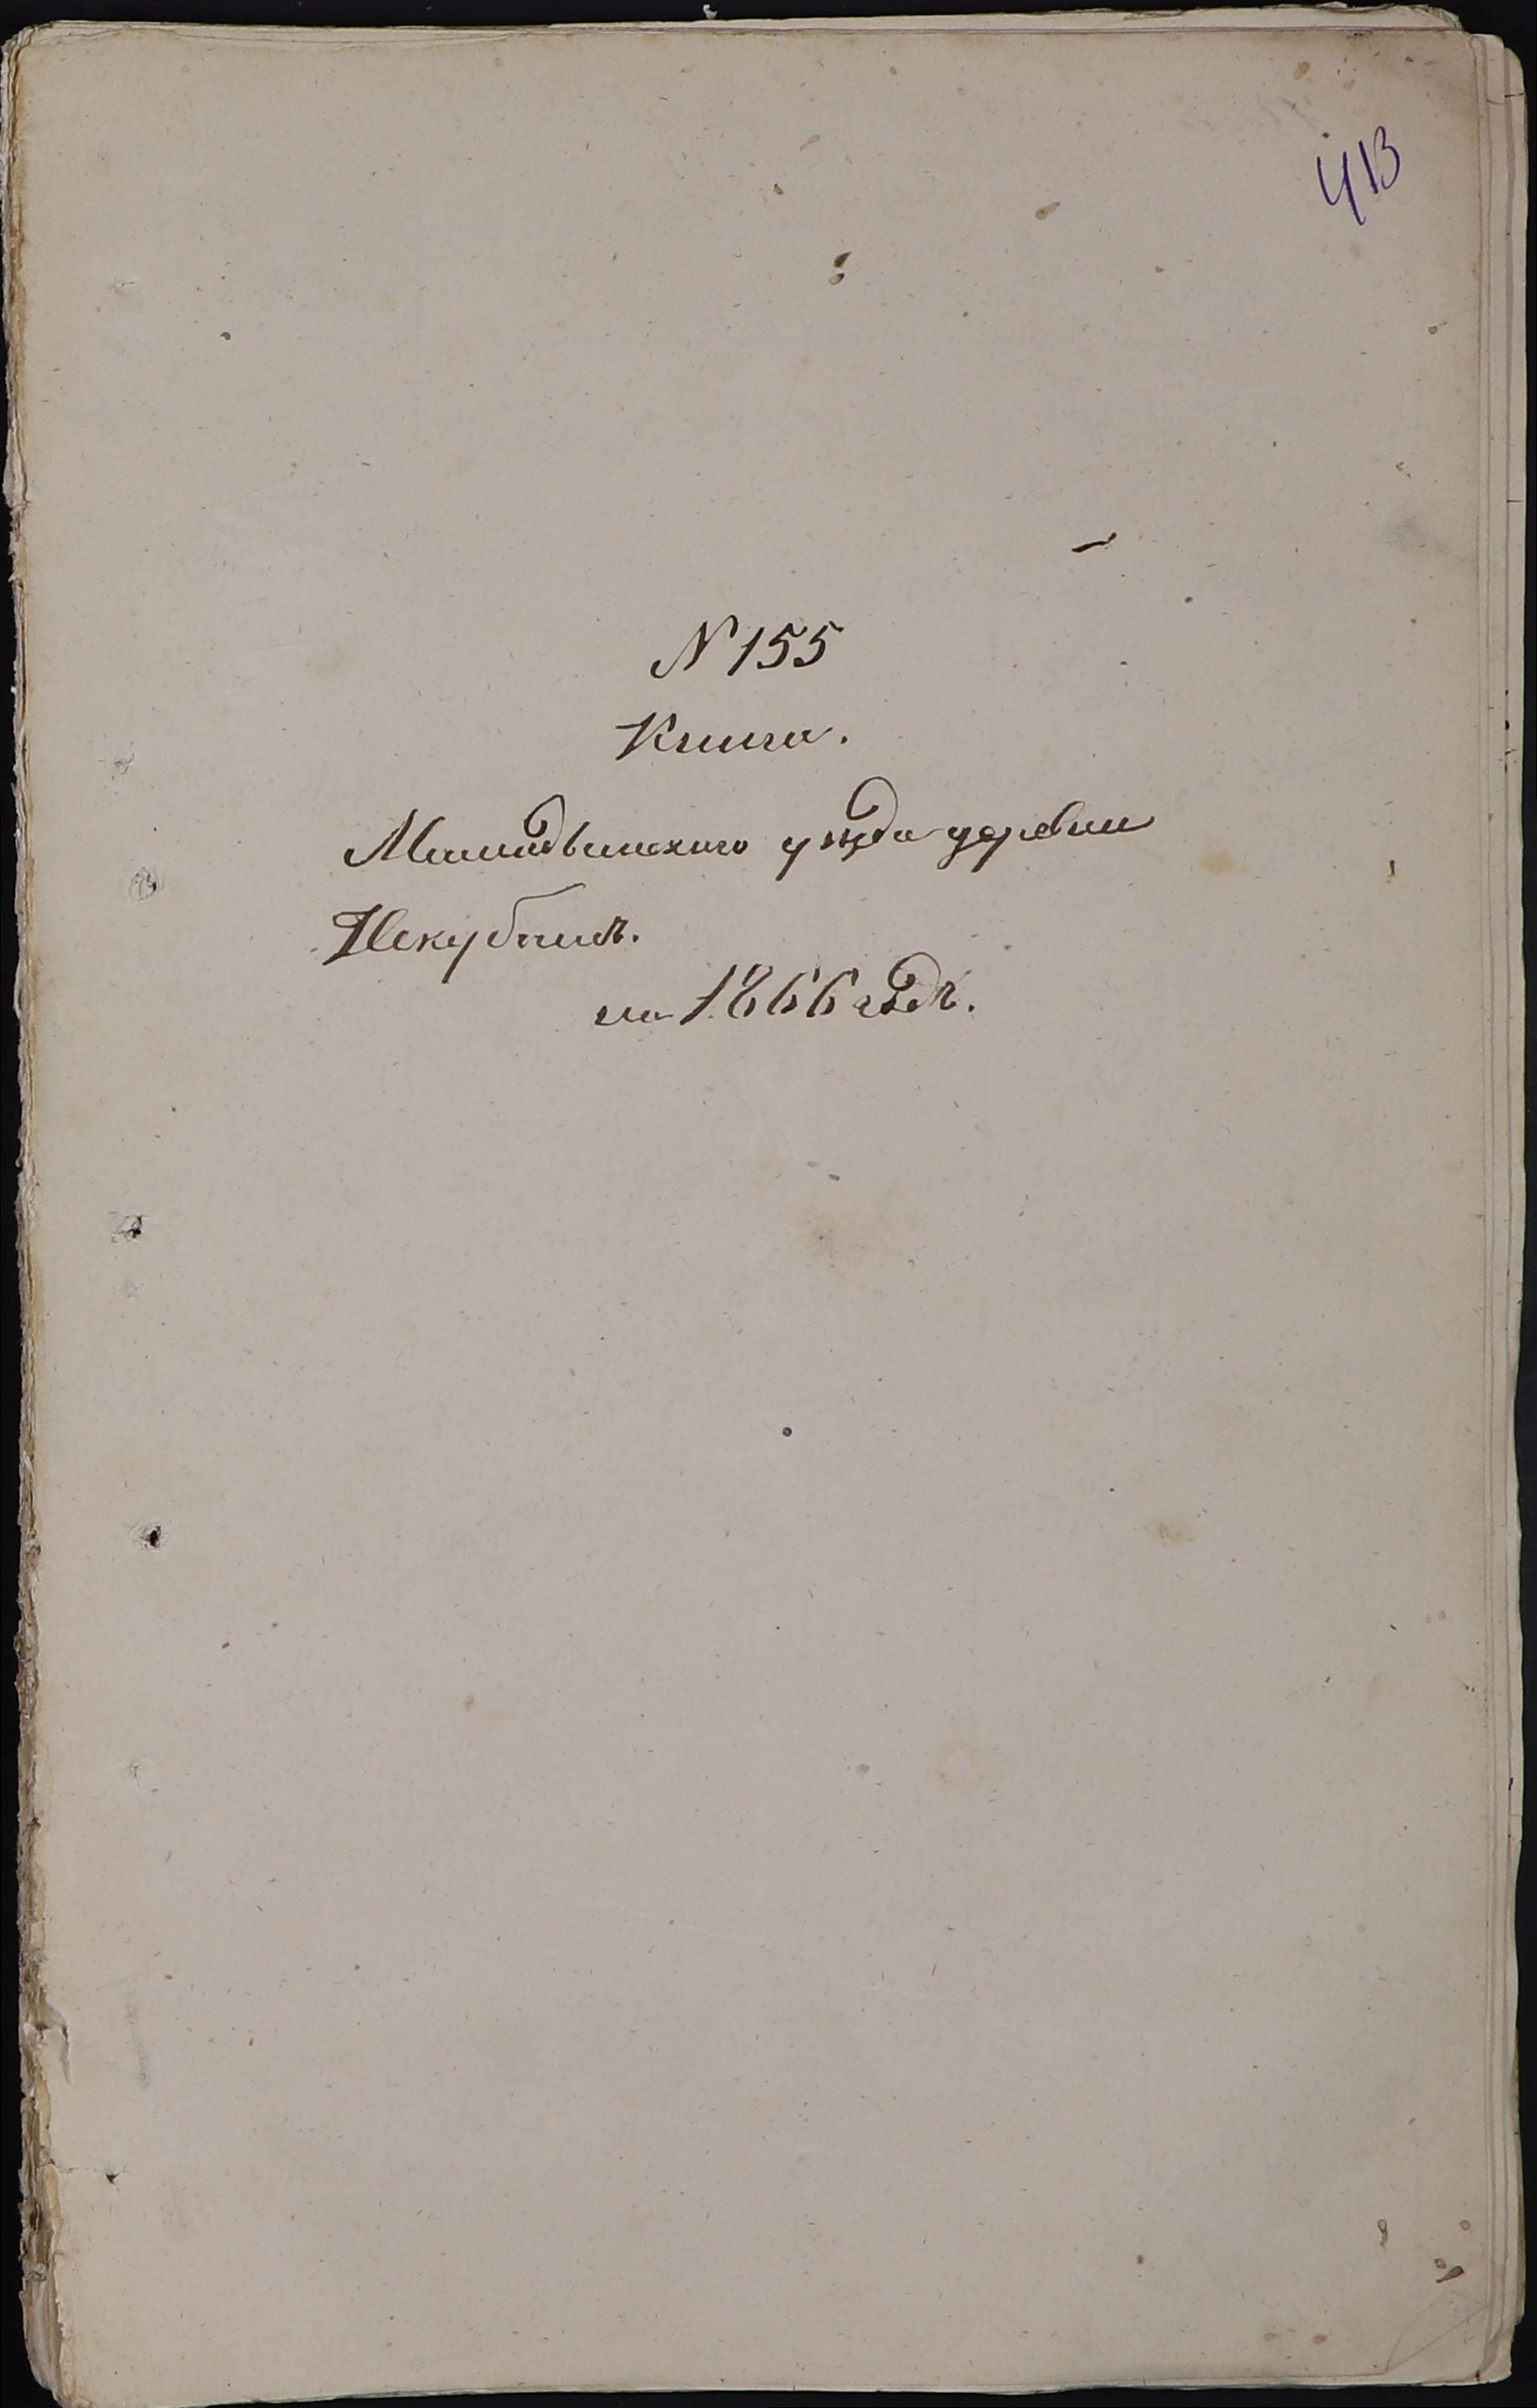 413
N 155
Книга.
Мамадышскаго уѣзда деревни
на 1866 годъ.